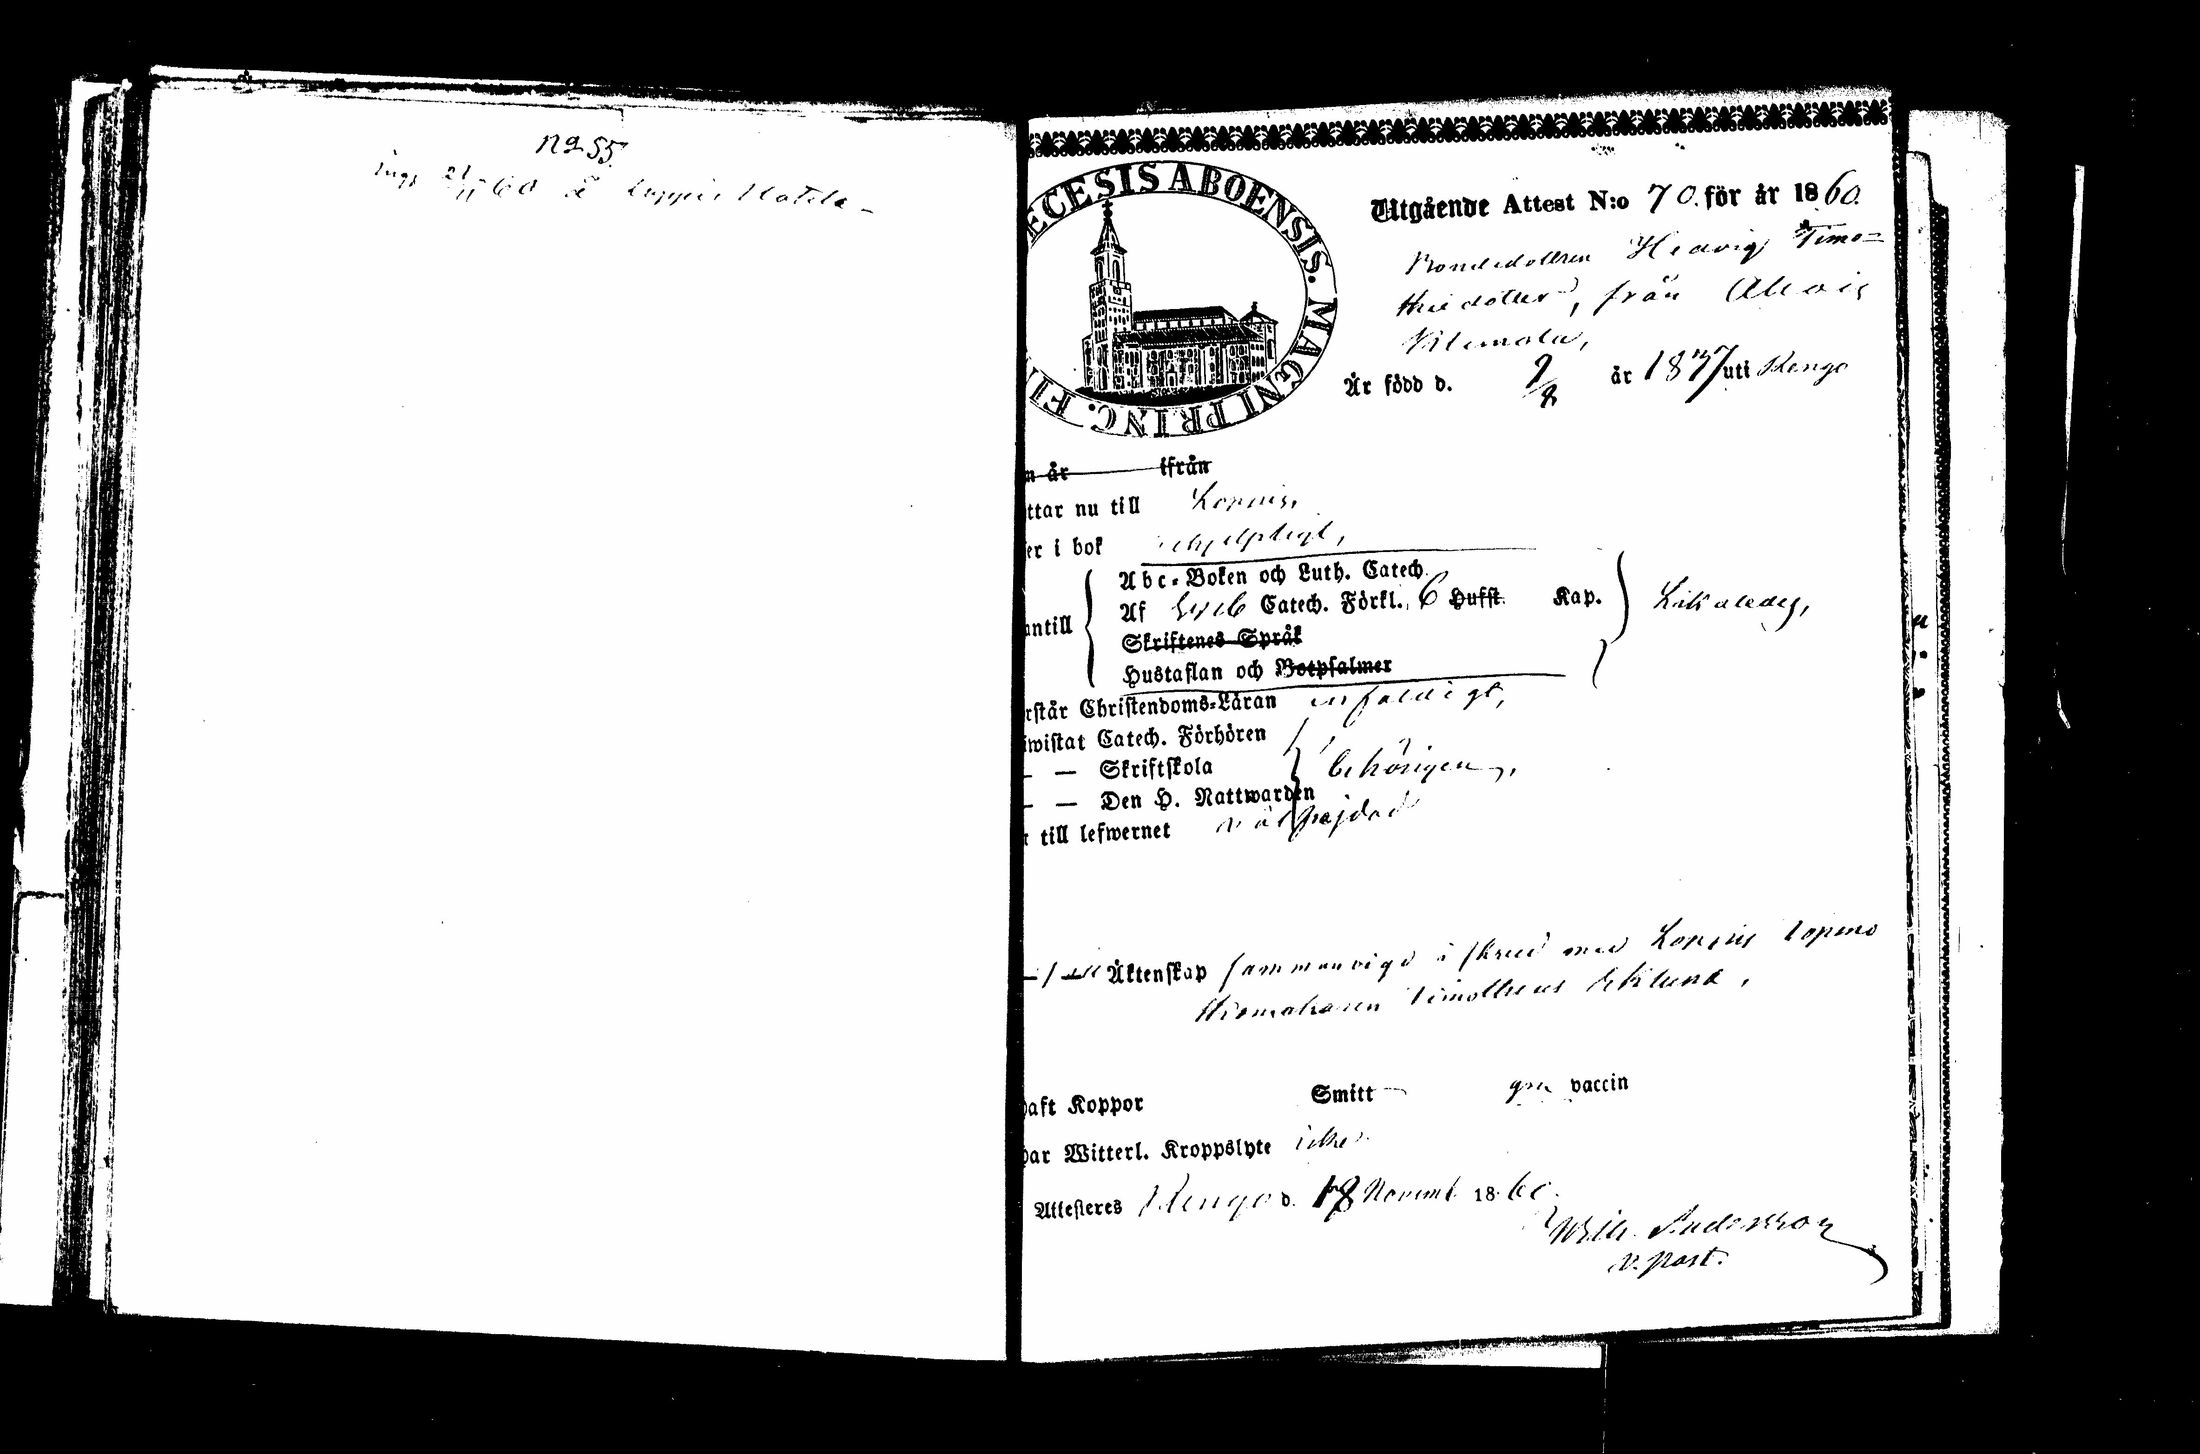 No 55.
21/11 60
DIOECESIS ABOENSIS. MAGNI PRINC. FI
Utgående Attest N:o 70. för år 1860.
Bondedottren Hedvig Timo=
theidotter, från Alevis
Är född d. 9/8 år 1837 uti Rengo
n år ifrån
ttar nu till Loppis,
er i bok
Abc-Boken och Luth. Catech.
Af Catech. Förkl. 6 Husst. Kap.
antill Likaledes,
Skriftenes Språk
Hustaflan och Botpsalmer
rstår Christendoms-Läran enfaldigt,
iwistat Catech. Förhören
— — Skriftskola behörigen,
— — Den H. Nattwarden
r till lefwernet välfrejdad
Äktenskap sammanvigd med Loppis Topeno
Timotheus Eklund,
haft Koppor Smitt vaccin
har Witterl. Kroppslyte icke
Attesteres Rengo d. 18 Novemb. 1860.
Wilh. Andersson
v. past.